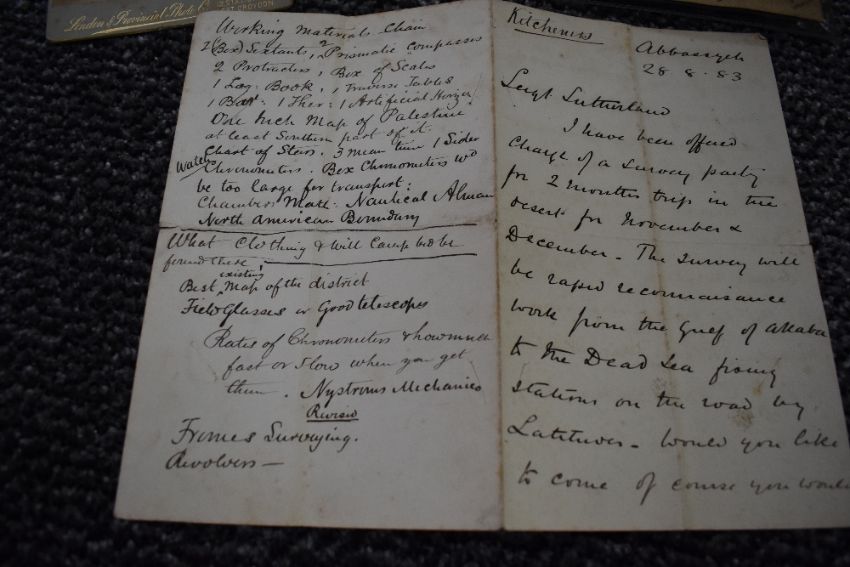 London & Provincial Photo C
CROYDON
Working Materials Chain
2 (Box) Sextants, 2 Prismatic Compasses
2 Protractors, Box of Scales
1 Log Book, 1 Traverse Tables
1 Bar: 1 Ther: 1 Artificial Horizn
One Inch Map of Palestine
at least Southern part of it.
Chart of Stars. 3 mean time 1 Sider
Watches
Chronometers. Box Chronometers wd
be too large for transport:
Chambers Math. Nautical Alman
North American Boundary
What Clothing & will Camp bed be
found there
existing
Best Map of the district
Field Glasses or Good telescopes
Rates of Chronometers & how much
fast or slow when you get
them. Nystroms Mechanics
Revised
Fromes Surveying.
Revolvers —
Kitcheners
Abbassyeh
28.8.83
Sergt Sutherland
I have been offered
charge of a survey party
for 2 months trip in the
desert for November &
December - The survey will
be rapid reconnaisance
work from the Gulf of Akaba
to the Dead Sea fixing
stations on the road by
Latitudes - Would you like
to come of course you would